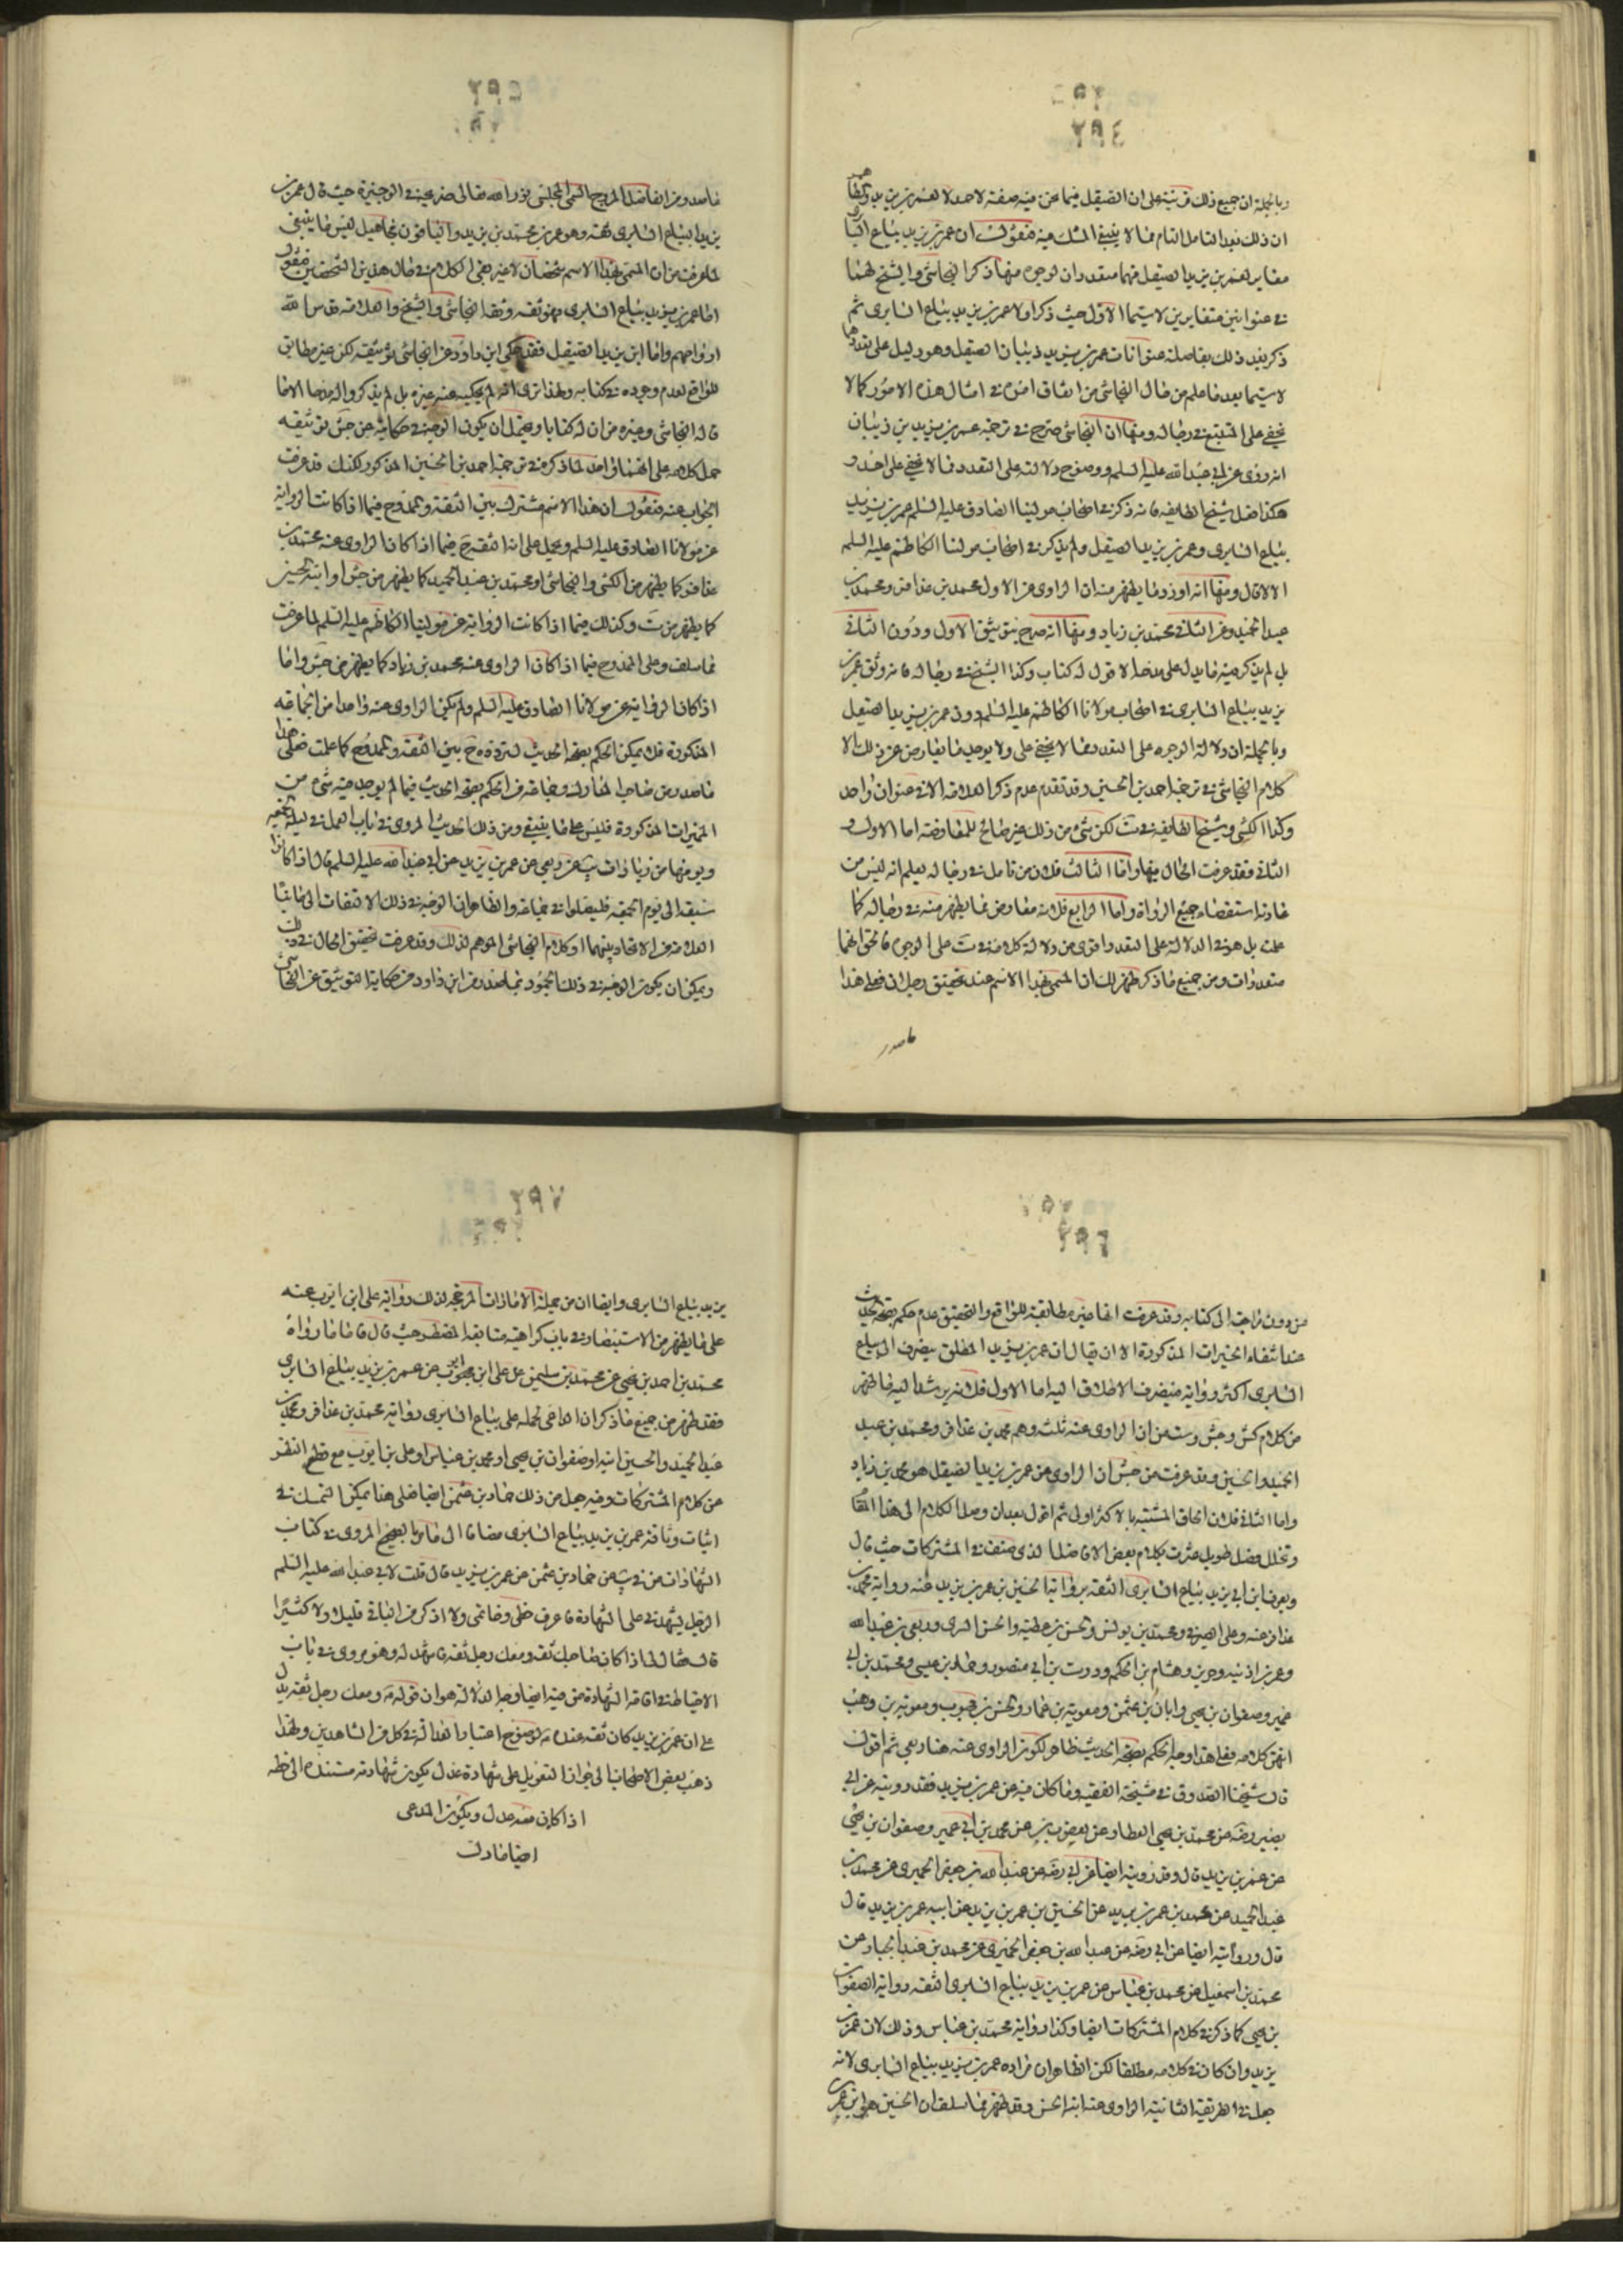 ٢٩٤
وبالجملة ان جميع ذلك قرينة على ان الصيقل فيما نحن فيه صفة لاحد لا لعمر بن يزيد والظاهر
ان ذلك بعد التأمل التام مما لا ينبغي الشك فيه فنقول ان عمر بن يزيد بياع السابري
مغاير لعمر بن يزيد الصيقل فهما متعددان لوجوه منها ذكر النجاشي والشيخ لهما
في عنوانين متغايرين لا سيما الاول حيث ذكر اولا عمر بن يزيد بياع السابري ثم
ذكر بعد ذلك بفاصلة عنوانات عمر بن يزيد ذبيان الصيقل وهو دليل على تعددهما
لا سيما بعد ما علم من حال النجاشي من امثال هذه الامور كما لا
يخفى على المتتبع في رجاله ومنها ان النجاشي صرح في ترجمة عمر بن يزيد بن ذبيان
انه روى عن ابي عبد الله عليه السلم ووضوح دلالته على التعدد مما لا يخفى على احد و
هكذا فعل شيخ الطايفة فانه ذكر في اصحاب مولينا الصادق عليه السلم عمر بن يزيد
بياع السابري وعمر بن يزيد الصيقل ولم يذكر في اصحاب مولينا الكاظم عليه السلم
الا الاول ومنها انه اورد ما يظهر منه ان الراوي عن الاول محمد بن عذافر ومحمد بن
عبد الحميد وعن الثاني محمد بن زياد ومنها انه صرح بتوثيق الاول ودون الثاني
بل لم يذكر فيه ما يدل على مدح الا قوله له كتاب وكذا الشيخ في رجاله فانه وثق عمر بن
يزيد بياع السابري في اصحاب مولانا الكاظم عليه السلم دون عمر بن يزيد الصيقل
وبالجملة ان دلالة الوجوه على التعدد مما لا يخفى على ولا يوجد ما يعارض عن ذلك الا
كلام النجاشي في ترجمة احمد بن الحسين وقد تقدم عدم ذكر العلامة الا في عنوان واحد
وكذا الكشي وشيخ الطايفة في ست لكن شيء من ذلك غير صالح للمعارضة اما الاول و
الثاني فقد عرفت الحال فيها واما الثالث فلان من تأمل في رجاله يعلم انه ليس من
عادته استقصاء جميع الرواة واما الرابع فلانه معارض بما يظهر منه في رجاله كما
علمت بل هو في الدلالة على التعدد اقوى من دلالة كلامه في ست على الوجوه فالحق انهما
متعددان ومن جميع ما ذكر ظهر لك ان المسمى بهذا الاسم عند تحقيق رجلان فعلى هذا
ما صدر
ما صدر من الفاضل المروج السمي المجلسي نور الله تعالى ضريحه في الوجيزة حيث قال عمر بن
يزيد بياع السابري ثقة وهو عمر بن محمد بن يزيد والباقون مجاهيل ليس مما ينبغي
لما عرفت من ان المسمى بهذا الاسم شخصان لا غير بقي الكلام في حال هذين الشخصين فنقول
اما عمر بن يزيد بياع السابري فهو ثقة وثقه النجاشي والشيخ والعلامة قدس الله
ارواحهم واما ابن يزيد الصيقل فقد حكى ابن داود عن النجاشي توثيقه لكن غير مطابق
للواقع لعدم وجوده في كتابه ولهذا ترى انه لم يحكيه عنه غيره بل لم يذكروا له مدحا الا ما
قاله النجاشي وغيره من ان له كتابا ويحتمل ان يكون الوجه في حكايته عن جش توثيقه
حمل كلامه على انهما واحد لما ذكره في ترجمة احمد بن الحسين المذكور لكنك قد عرفت
الجواب عنه فنقول ان هذا الاسم مشترك بين الثقة وممدوح فيما اذا كانت الرواية
عن مولانا الصادق عليه السلم ويحمل على انه الثقة ح فيما اذا كان الراوي عنه محمد بن
عذافر كما يظهر من الكشي والنجاشي او محمد بن عبد الحميد كما يظهر من جش او ابنه الحسين
كما يظهر من ست وكذلك فيما اذا كانت الرواية عن مولينا الكاظم عليه السلم لما عرفت
مما سلف وعلى الممدوح فيما اذا كان الراوي عنه محمد بن زياد كما يظهر من جش واما
اذا كان الرواية عن مولانا الصادق عليه السلم ولم يكن الراوي عنه واحدا من الجماعة
المذكورة فلا يمكن الحكم بصحة الحديث لتردده ح بين الثقة والممدوح كما علمت فعلى هذا
ما صدر من صاحب المدارك وجماعة من الحكم بصحة الحديث فيما لم يوجد فيه شيء من
المميزات المذكورة فليس على ما ينبغي ومن ذلك الحديث المروي في باب العمل في ليلة الجمعة
ويومها من زيادات يب عن ربعي عن عمر بن يزيد عن ابي عبد الله عليه السلم قال اذا كانوا
سبعة الى يوم الجمعة فليصلوا في جماعة والظاهر ان الوجه في ذلك الالتفات الى ما نبّا
العلامة من الاتحاد بينهما او كلام النجاشي الموهم لذلك وقد عرفت تحقيق الحال في ذلك
ويمكن ان يكون الوجه في ذلك الجمود بما صدر من ابن داود من حكاية التوثيق عن النجاشي
٢٩٦
من دون مراجعة الى كتابه وقد عرفت انها غير مطابقة للواقع والتحقيق عدم حكم بصحة الحديث
عند انتفاء المميزات المذكورة الا ان يقال ان عمر بن يزيد المطلق ينصرف الى بياع
السابري اكثر رواية فينصرف الاطلاق اليه اما الاول فلانه يرشد اليه ما ظهر
من كلام كش وجش وست من ان الراوي عنه ثلث وهم محمد بن عذافر ومحمد بن عبد
الحميد والحسين وقد عرفت من جش ان الراوي عن عمر بن يزيد الصيقل هو محمد بن زياد
واما الثاني فلان الحاق المشتبه بالاكثر اولى ثم اقول بعد ان وصل الكلام الى هذا المقام
وتخلل فصل طويل عثرت بكلام بعض الافاضل الذي صنف في المشتركات حيث قال
ويعرف ابن ابي يزيد بياع السابري الثقة برواية الحسين بن عمر بن يزيد عنه ورواية محمد بن
عذافر عنه وعلى الصيرفي ومحمد بن يونس والحسن بن عطية والحسن السري وربعي بن عبد الله
وعمر بن اذينه وحريز وهشام بن الحكم ودرست بن ابي منصور وحماد بن عيسى ومحمد بن ابي
عمير وصفوان بن يحيى وابان بن عثمن ومعوية بن عمار والحسن بن محبوب ومعوية بن وهب
انتهى كلامه فعلى هذا وجه الحكم بصحة الحديث ظاهر لكون الراوي عنه هنا ربعي ثم اقول
قال شيخنا الصدوق في مشيخة الفقيه وما كان فيه عن عمر بن يزيد فقد رويته عن ابي
رضه عن محمد بن يحيى العطار عن يعقوب بن يزيد عن محمد بن ابي عمير وصفوان بن يحيى
عن عمر بن يزيد قال وقد رويته ايضا عن ابي رضه عن عبد الله بن جعفر الحميري عن محمد بن
عبد الحميد عن محمد بن عمر بن يزيد عن الحسين بن عمر بن يزيد عن ابيه عمر بن يزيد قال
قال ورويته ايضا عن ابي رضه عن عبد الله بن جعفر الحميري عن محمد بن عبد الجبار عن
محمد بن اسمعيل عن محمد بن عباس عن عمر بن يزيد بياع السابري الثقة رواية الصفوان
بن يحيى كما ذكر في كلام المشتركات ايضا وكذا رواية محمد بن عباس وذلك لان عمر بن
يزيد وان كان في كلامه مطلقا لكن الظاهر ان مراده عمر بن يزيد بياع السابري لانه
جعل في الطريقة الثانية الراوي عنه ابنه الحسن وقد ظهر مما سلف ان الحسين هو ابن عمر بن
٢٩٧
يزيد بياع السابري وايضا ان من جملة الامارات المرجحة لذلك رواية على ابن ايوب عنه
على ما يظهر من الاستبصار في باب كراهية حيث قال فاما ما رواه
محمد بن احمد بن يحيى عن محمد بن سليمن عن على ابن ايوب عن عمر بن يزيد بياع السابري
فقد ظهر من جميع ما ذكر ان الداعي لحمله على بياع السابري رواية محمد بن عذافر ومحمد بن
عبد الحميد والحسين ابنه او صفوان بن يحيى او محمد بن عباس او على بن ايوب مع قطع النظر
عن كلام المشتركات وفيه جعل من ذلك حماد بن عثمن ايضا فعلى هذا يمكن التمسك في
اثبات وثاقة عمر بن يزيد بياع السابري مضافا الى ما مر بالصحيح المروي في كتاب
الشهادات من في يب عن حماد بن عثمن عن عمر بن يزيد قال قلت لابي عبد الله عليه السلم
الرجل يشهدني على الشهادة فاعرف خطي وخاتمي ولا اذكر من الباقي قليلا ولا كثيرا
قال فقال لي اذا كان صاحبك ثقة ومعك رجل ثقة فاشهد له وهو مروي في باب
الاحتياط في اقامة الشهادة من فيه ايضا وجه الدلالة هو ان قوله ع ومعك رجل ثقة يدل
على ان عمر بن يزيد كان ثقة عنده ع لوضوح اعتبار العدالة في كل من الشاهدين ولهذا
ذهب بعض الاصحاب الى جواز التعويل على شهادة عدل يكون شهادته مستندة الى خطه
اذا كان معه عدل ويكون المدعي
ايضا عادل